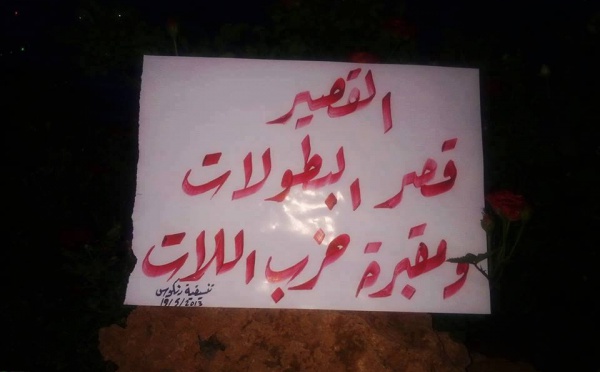 القصير
قصر البطولات
ومقبرة حزب اللات
تنسيقية رنكوس
19/5/2013